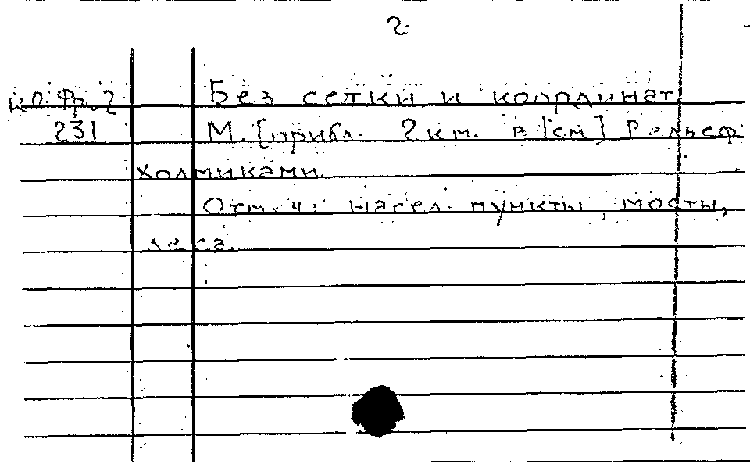 2.
Без сетки и координат
К0 Фр. 2
231
М. [прибл. 2 км. в 1см] Рельеф
холмиками.
Отм-ч: насел. пункты, мосты,
леса.